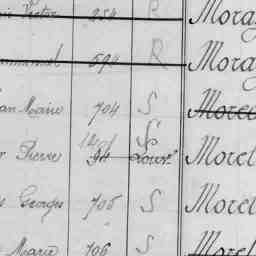 Victor 254 R Mora
Emmanuel 594 R Mora
an Marie 704 S Morel
r Pierre 94 S Morel
s Georges 705 S Morel
Marie 706 S Morel